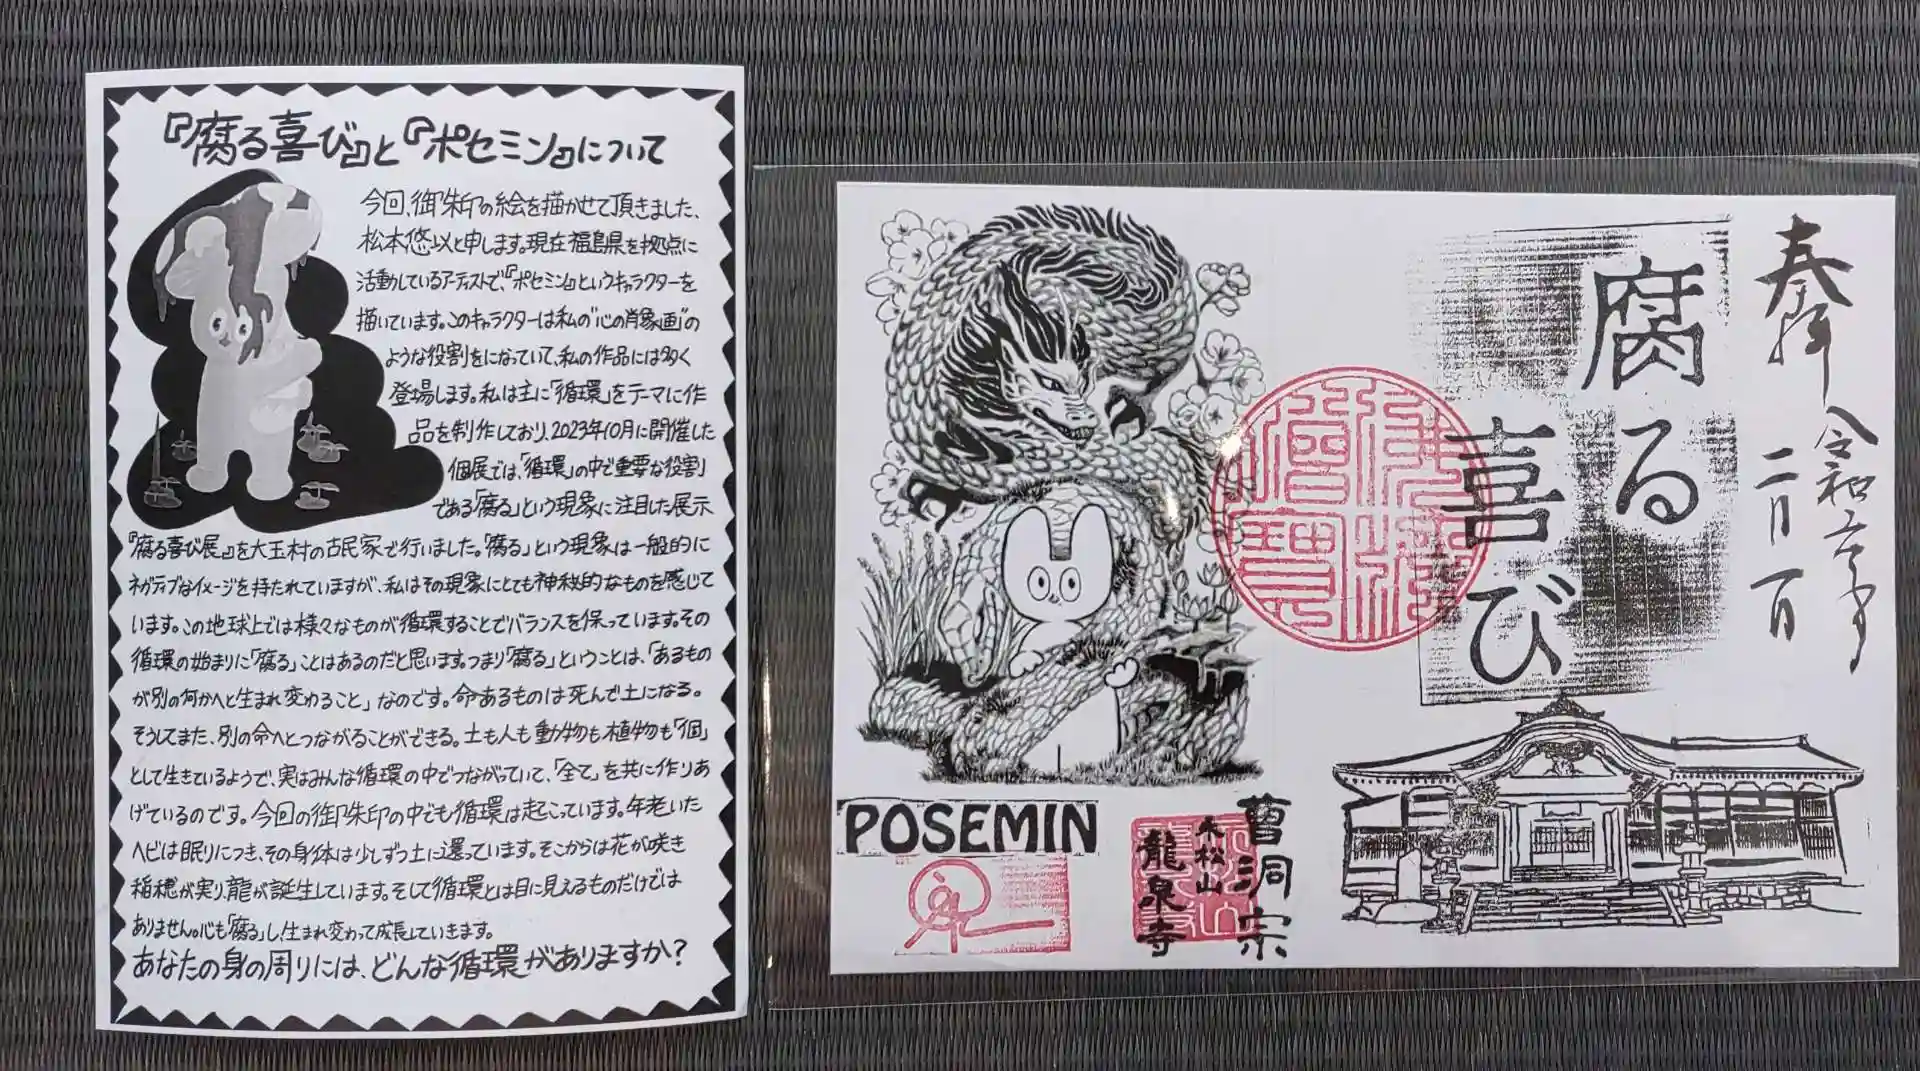 『腐る喜び』と『ポセミン』について
今回、御朱印の絵を描かせて頂きました、
松本悠以と申します。現在福島県を拠点に
活動しているアーティストで、『ポセミン』というキャラクターを
描いています。このキャラクターは私の"心の肖象画"の
ような役割をになっていて、私の作品には多く
登場します。私は主に「循環」をテーマに作
品を制作しており、2023年10月に開催した
個展では、「循環」の中で重要な役割
である「腐る」という現象に注目した展示
『腐る喜び展』を大玉村の古民家で行いました。「腐る」という現象は一般的に
ネガティブなイメージを持たれていますが、私はその現象にとても神秘的なものを感じて
います。この地球上では様々なものが循環することでバランスを保っています。その
循環の始まりに「腐る」ことはあるのだと思います。つまり「腐る」ということは、「あるもの
が別の何かへと生まれ変わること」なのです。命あるものは死んで土になる。
そうしてまた、別の命へとつながることができる。土も人も動物も植物も「個」
として生きているようで、実はみんな循環の中でつながっていて、「全て」を共に作りあ
げているのです。今回の御朱印の中でも循環は起こっています。年老いた
ヘビは眠りにつき、その身体は少しずつ土に還っています。そこからは花が咲き
稲穂が実り、龍が誕生しています。そして循環とは目に見えるものだけでは
ありません。心も「腐る」し、生まれ変わって成長していきます。
あなたの身の周りには、どんな循環がありますか?
奉拝
令和六年
二月一日
腐る
喜び
POSEMIN
曹洞宗
永松山
龍泉寺